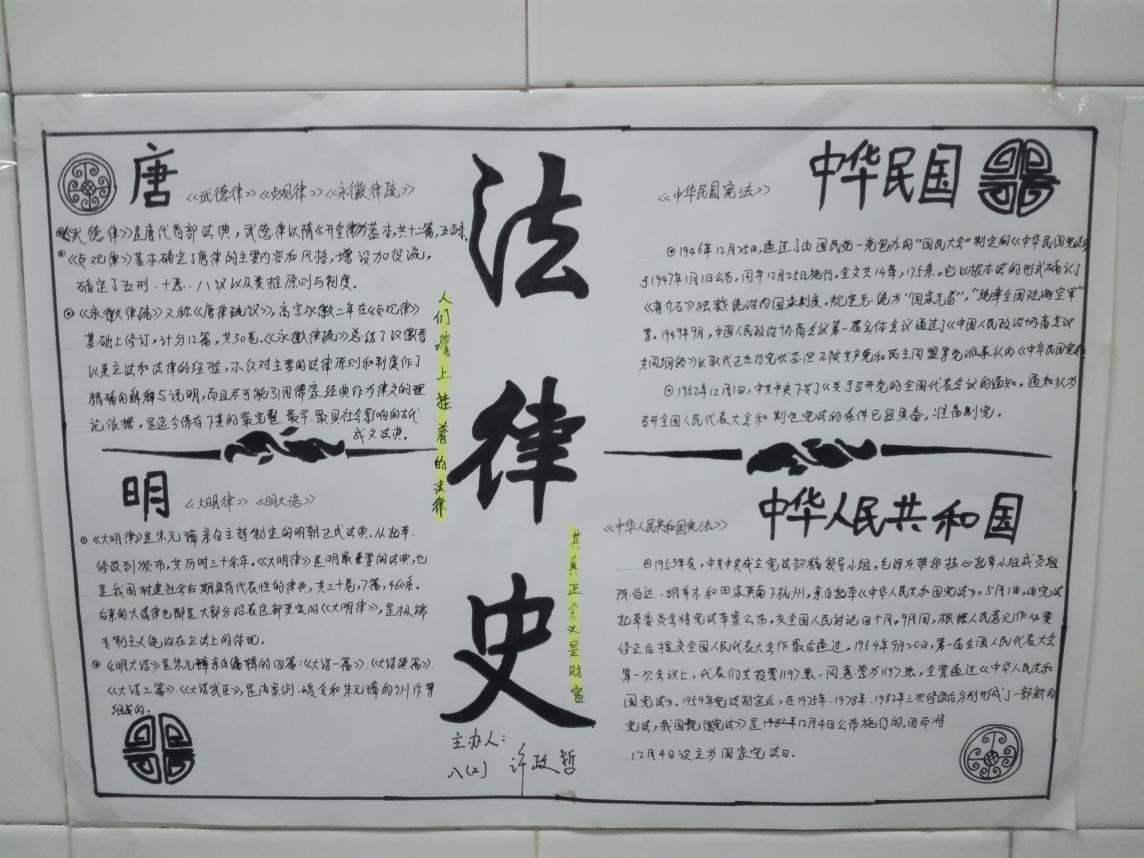 唐
《武德律》《贞观律》《永徽律疏》
《武德律》是唐代首部法典，武德律以隋《开皇律》为蓝本，共十二篇，五百条。
《贞观律》基本确定了唐律的主要内容和风格，增设加役流，
确定了五刑、十恶、八议以及类推原则与制度。
《永徽律疏》又称《唐律疏议》，高宗永徽二年在《贞观律》
基础上修订，计分12篇，共30卷。《永徽律疏》总结了汉魏晋
以来立法和法律的经验，不仅对主要的法律原则和制度作了
精确的解释与说明，而且尽可能引用儒家经典作为律文的理
论依据，是迄今保存下来的最完整、最早、最具社会影响的古代
成文法典。
明
《大明律》《明大诰》
《大明律》是朱元璋亲自主持制定的明朝正式法典。从起草、
修改到颁布，共历时三十余年。《大明律》是明最重要的法典，也
是我国封建社会后期具有代表性的律典，共三十卷，7篇，460条。
后来的大清律也都是大部分沿袭这部更定的《大明律》，是极端
专制主义统治在立法上的体现。
《明大诰》是朱元璋亲自编辑的四篇：《大诰一篇》、《大诰续篇》、
《大诰三篇》、《大诰武臣》，是由案例、峻令和朱元璋的训斥等
组成的。
法律史
人们嘴上挂着的法律
其真正含义是财富
主办人：
八(2) 许政哲
中华民国
《中华民国宪法》
1946年12月25日，通过了由国民党一党包办的“国民大会”制定的《中华民国宪法》
于1947年1月1日公布，同年12月25日施行。全文共14章，175条。它以根本法的形式确认了
《蒋介石》独裁统治的国家制度。规定总统为“国家元首”，“统率全国陆海空军”
等。1949年9月，中国人民政治协商会议第一届全体会议通过了《中国人民政治协商会议
共同纲领》
1952年12月1日，中共中央下发了《关于召开党的全国代表会议的通知，通知认为
召开全国人民代表大会和制定宪法的条件已经具备，准备制宪。
中华人民共和国
《中华人民共和国宪法》
1953年底，中共中央成立宪法初稿领导小组，毛泽东带领核心起草小组成员
陈伯达、胡乔木和田家英南下杭州，亲自起草《中华人民共和国宪法》。5月1日，由宪法
起草委员会将宪法草案公布，交全国人民讨论四个月，9月间，根据人民意见作必要
修正后提交全国人民代表大会作最后通过。1954年9月20日，第一届全国人民代表大会
第一次会议上，代表们共投票1197张，同意票为1197张，全票通过《中华人民共和
国宪法》。1954年宪法制定后，在1975年、1978年、1982年三次修改后分别形成了一部新的
宪法，我国现《宪法》是1982年12月4日公布施行的，因而将
12月4日设立为国家宪法日。